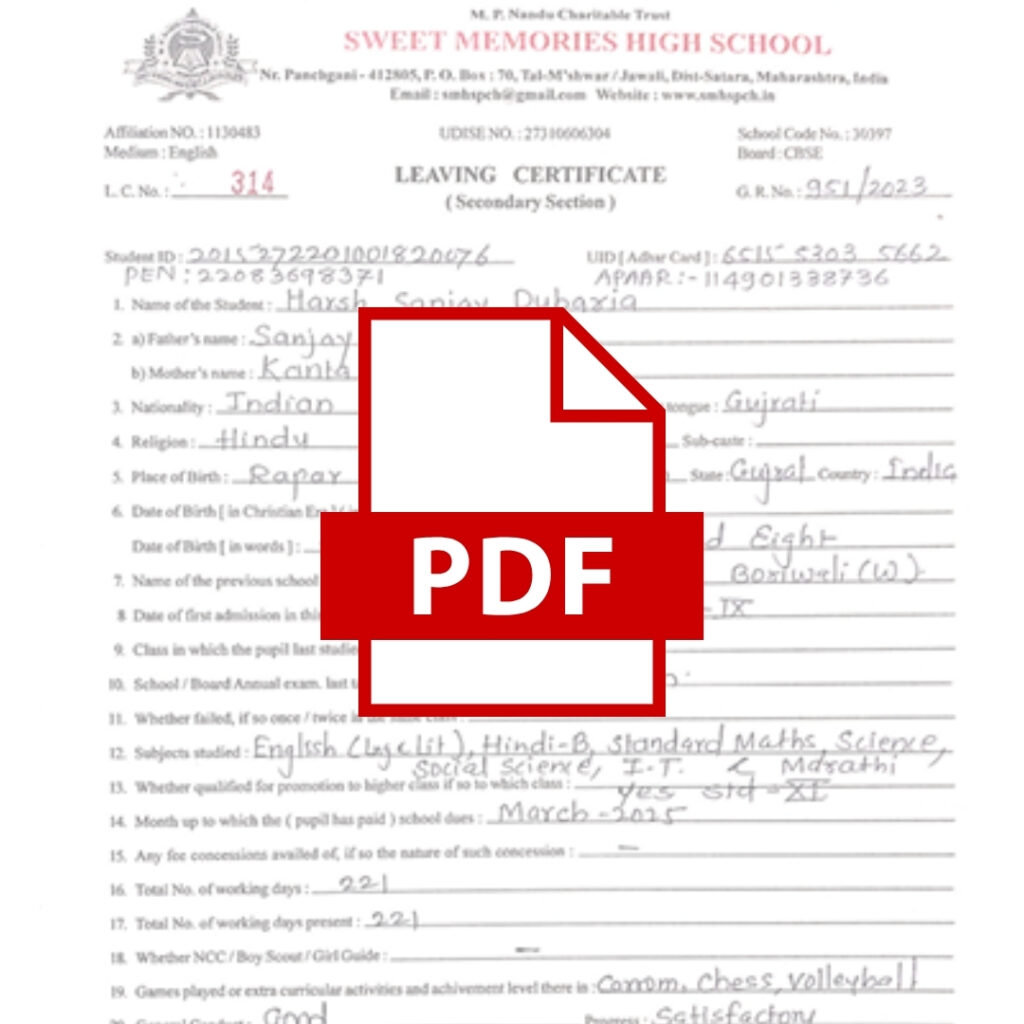 M. P. Nandu Charitable Trust
SWEET MEMORIES HIGH SCHOOL
Nr. Panchgani - 412805, P. O. Box : 70, Tal-M'shwar / Jawali, Dist-Satara, Maharashtra, India
Email : smhspch@gmail.com Website : www.smhspch.in
Affiliation NO. : 1130483 UDISE NO. : 27310606304 School Code No. : 30397
Medium : English Board : CBSE
LEAVING CERTIFICATE
L. C. No. : 314 G. R. No. : 951/2023
( Secondary Section )
Student ID : 2015272201001820076 UID [ Adhar Card ] : 6515 5303 5662
PEN : 22083698371 APAAR :- 114901338736
1. Name of the Student : Harsh Sanjay Dubaria
2. a) Father's name : Sanjay
b) Mother's name : Kanta
3. Nationality : Indian tongue : Gujrati
4. Religion : Hindu Sub-caste :
5. Place of Birth : Rapar State : Gujrat Country : India
6. Date of Birth [ in Christian Era
Date of Birth [ in words ] : d Eight
7. Name of the previous school Boriwali (W)
8 Date of first admission in this - IX
9. Class in which the pupil last studied
10. School / Board Annual exam. last t
11. Whether failed, if so once / twice in the same class :
PDF
12. Subjects studied : English (Lng & Lit), Hindi-B, Standard Maths, Science,
Social Science, I.T. & Marathi
13. Whether qualified for promotion to higher class if so to which class : Yes std - XI
14. Month up to which the ( pupil has paid ) school dues : March - 2025
15. Any fee concessions availed of, if so the nature of such concession : -
16. Total No. of working days : 221
17. Total No. of working days present : 221
18. Whether NCC / Boy Scout / Girl Guide : -
19. Games played or extra curricular activities and achivement level there in : Carrom, Chess, Volleyball
20. General Conduct : Good Progress : Satisfactory